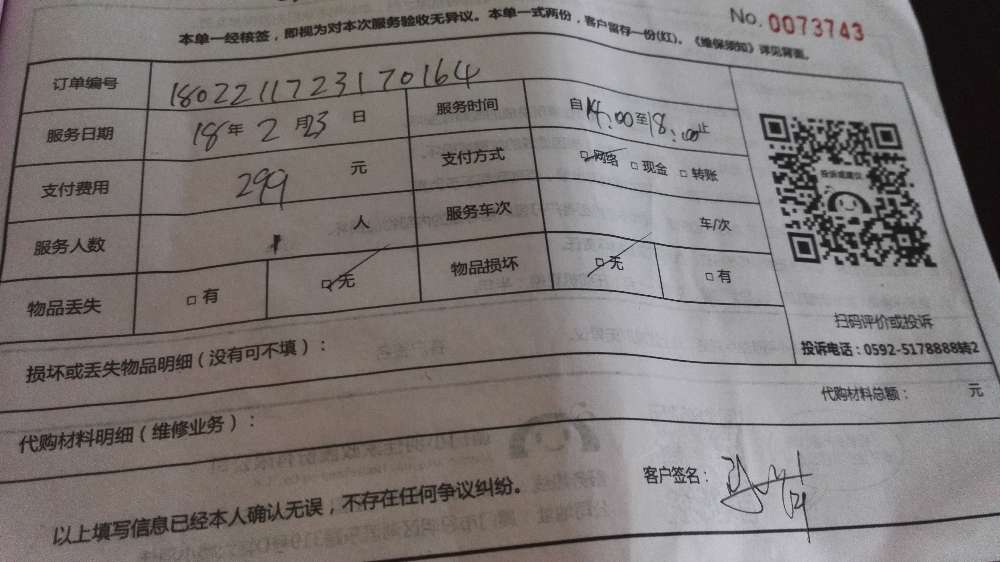 No. 0073743
本单一经核签，即视为对本次服务验收无异议。本单一式两份，客户留存一份(红)。《维保须知》详见背面。
订单编号 180221172317 0164
服务日期 18 年 2 月 23 日 服务时间 自 14:00 至 18:00 止
支付费用 299 元 支付方式 □网络 □现金 □转账
服务人数 1 人 服务车次 车/次
物品丢失 □有 □无 物品损坏 □无 □有
投诉或建议
扫码评价或投诉
投诉电话：0592-5178888转2
损坏或丢失物品明细（没有可不填）：
代购材料明细（维修业务）： 代购材料总额： 元
以上填写信息已经本人确认无误，不存在任何争议纠纷。 客户签名：